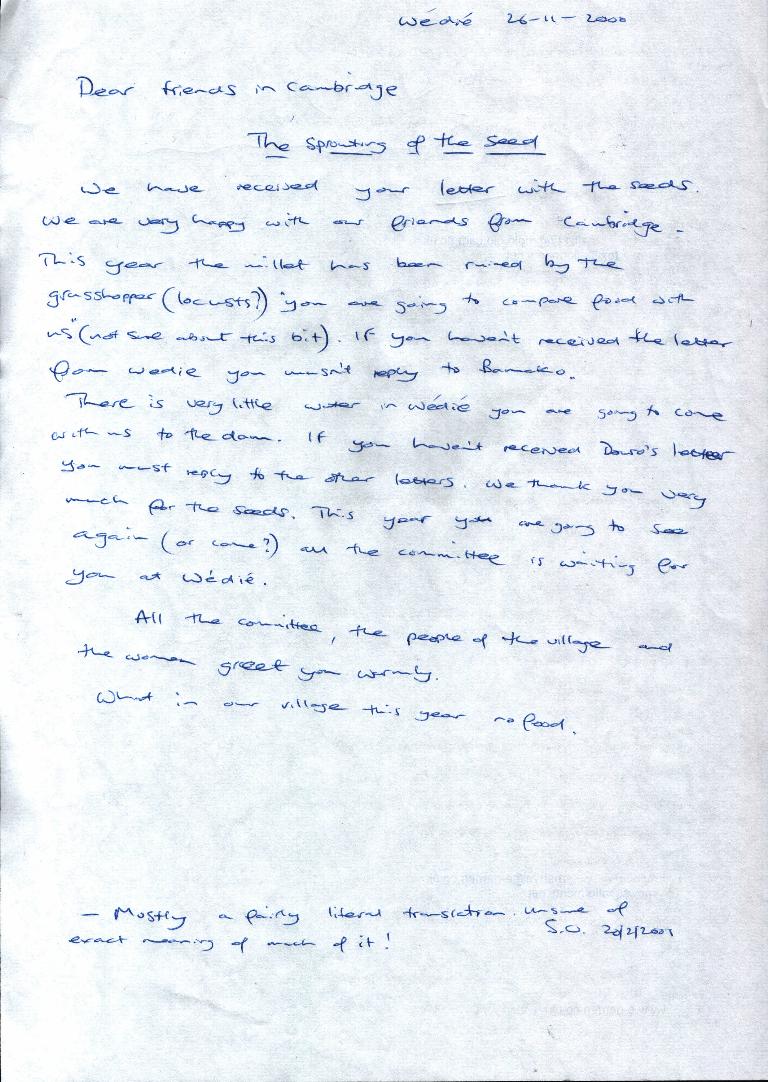 Wédié 26-11-2000
Dear friends in Cambridge
The Sprouting of the Seed
We have received your letter with the seeds.
We are very happy with our friends from Cambridge.
This year the millet has been ruined by the
grasshopper (locusts?) "you are going to compare food with
us" (not sure about this bit). If you haven't received the letter
from Wedie you mustn't reply to Bamako.
There is very little water in Wédié you are going to come
with us to the dam. If you haven't received Douro's letter
you must reply to the other letters. We thank you very
much for the seeds. This year you are going to see
again (or come?) all the committee is waiting for
you at Wédié.
All the committee, the people of the village and
the women greet you warmly.
What in our village this year no food.
- Mostly a fairly literal translation. Unsure of
exact meaning of much of it!
S.O. 20/2/2001